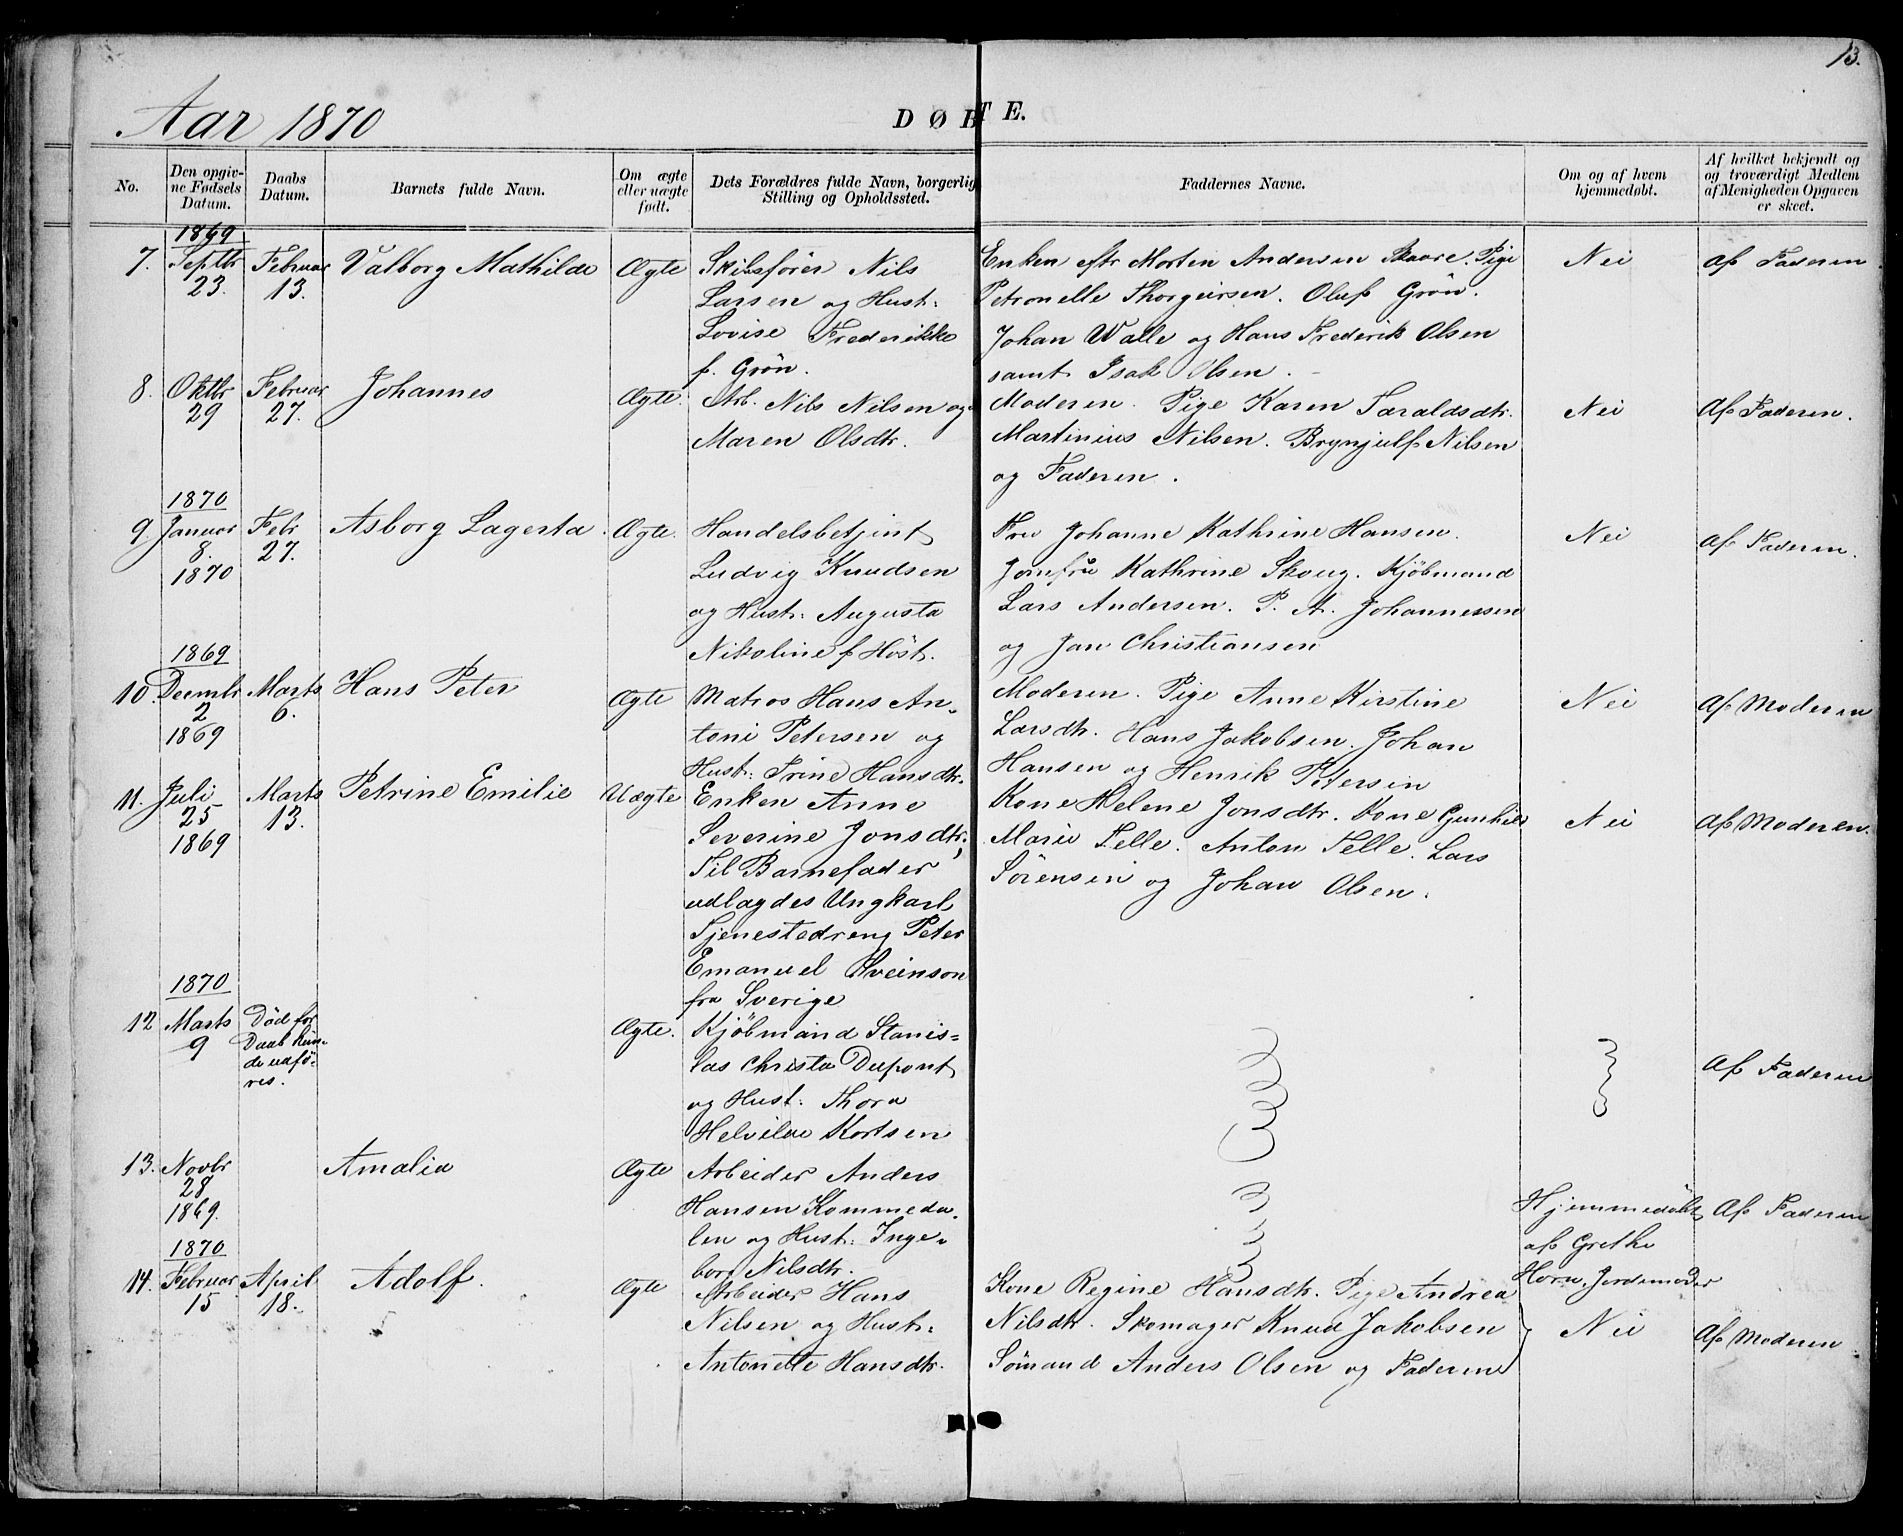 13.
Aar 1870
DØBTE.
No.
Den opgiv-
ne Fødsels
Datum.
Daabs
Datum.
Barnets fulde Navn.
Om ægte
eller uægte
født.
Dets Forældres fulde Navn, borgerlig
Stilling og Opholdssted.
Faddernes Navne.
Om og af hvem
hjemmedøbt.
Af hvilket bekjendt og
og troværdigt Medlem
af Menigheden Opgaven
er skeet.
7.
1869
Septbr
23.
Februar
13.
Valborg Mathilde
Ægte
Skibsfører Nils
Larsen og Hust:
Lovise Frederikke
f. Grøn.
Enken eftr Morten Andersen Skaare. Pige
Petronelle Thorgeirsen. Oluf Grøn.
Johan Walle og Hans Frederik Olsen
samt Isak Olsen.
Nei
Af Faderen
8.
Oktbr
29
Februar
27.
Johannes
Ægte.
Arb. Nils Nilsen og
Maren Olsdtr.
Moderen. Pige Karen Taraldsdtr.
Martinius Nilsen. Brynjulf Nilsen
og Faderen.
Nei
Af Faderen.
9.
1870
Januar
8.
1870
Febr
27.
Asborg Lagerta.
Ægte.
Handelsbetjent
Ludvig Knudsen
og Hust: Augusta
Nikoline f Høst.
Fru Johanne Kathrine Hansen.
Jomfru Kathrine Skoug. Kjøbmand
Lars Andersen. P. A. Johannessen
og Jan Christiansen
Nei
Af Faderen.
10.
1869
Decembr
2
1869
Marts
6.
Hans Peter
Ægte
Matros Hans An-
toni Petersen og
Hust: Trine Hansdtr.
Moderen. Pige Anne Kirstine
Larsdtr. Hans Jakobsen. Johan
Hansen og Henrik Petersen
Nei
Af Moderen
11.
Juli
25
1869
Marts
13.
Petrine Emilie
Uægte
Enken Anne
Severine Jonsdtr,
Til Barnefader
udlagdes Ungkarl
Tjenestedreng Peter
Emanuel Sveinson
fra Sverige
Kone Helene Jonsdtr. Kone Gunhild
Marie Felle. Anton Felle. Lars
Sørensen og Johan Olsen.
Nei
Af Moderen.
12
1870
Marts
9
Død før
Daab kun-
de udfø-
res.
Ægte.
Kjøbmand Stanis-
las Christa Dupont
og Hust: Thora
Helvilde Kortsen
Af Faderen
13.
Novbr
28
1869.
Amalia
Ægte
Arbeider Anders
Hansen Kommeda-
len og Hust: Inge-
borg Nilsdtr.
Hjemmedøbt
af Grethe
Horn, Jordemoder
Af Faderen
14.
1870
Februar
15
April
18.
Adolf.
Ægte
Arbeider Hans
Nilsen og Hust:
Antonette Hansdtr.
Kone Regine Hansdtr. Pige Andrea
Nilsdtr. Skomager Knud Jakobsen
Sømand Anders Olsen og Faderen
Nei
Af Moderen